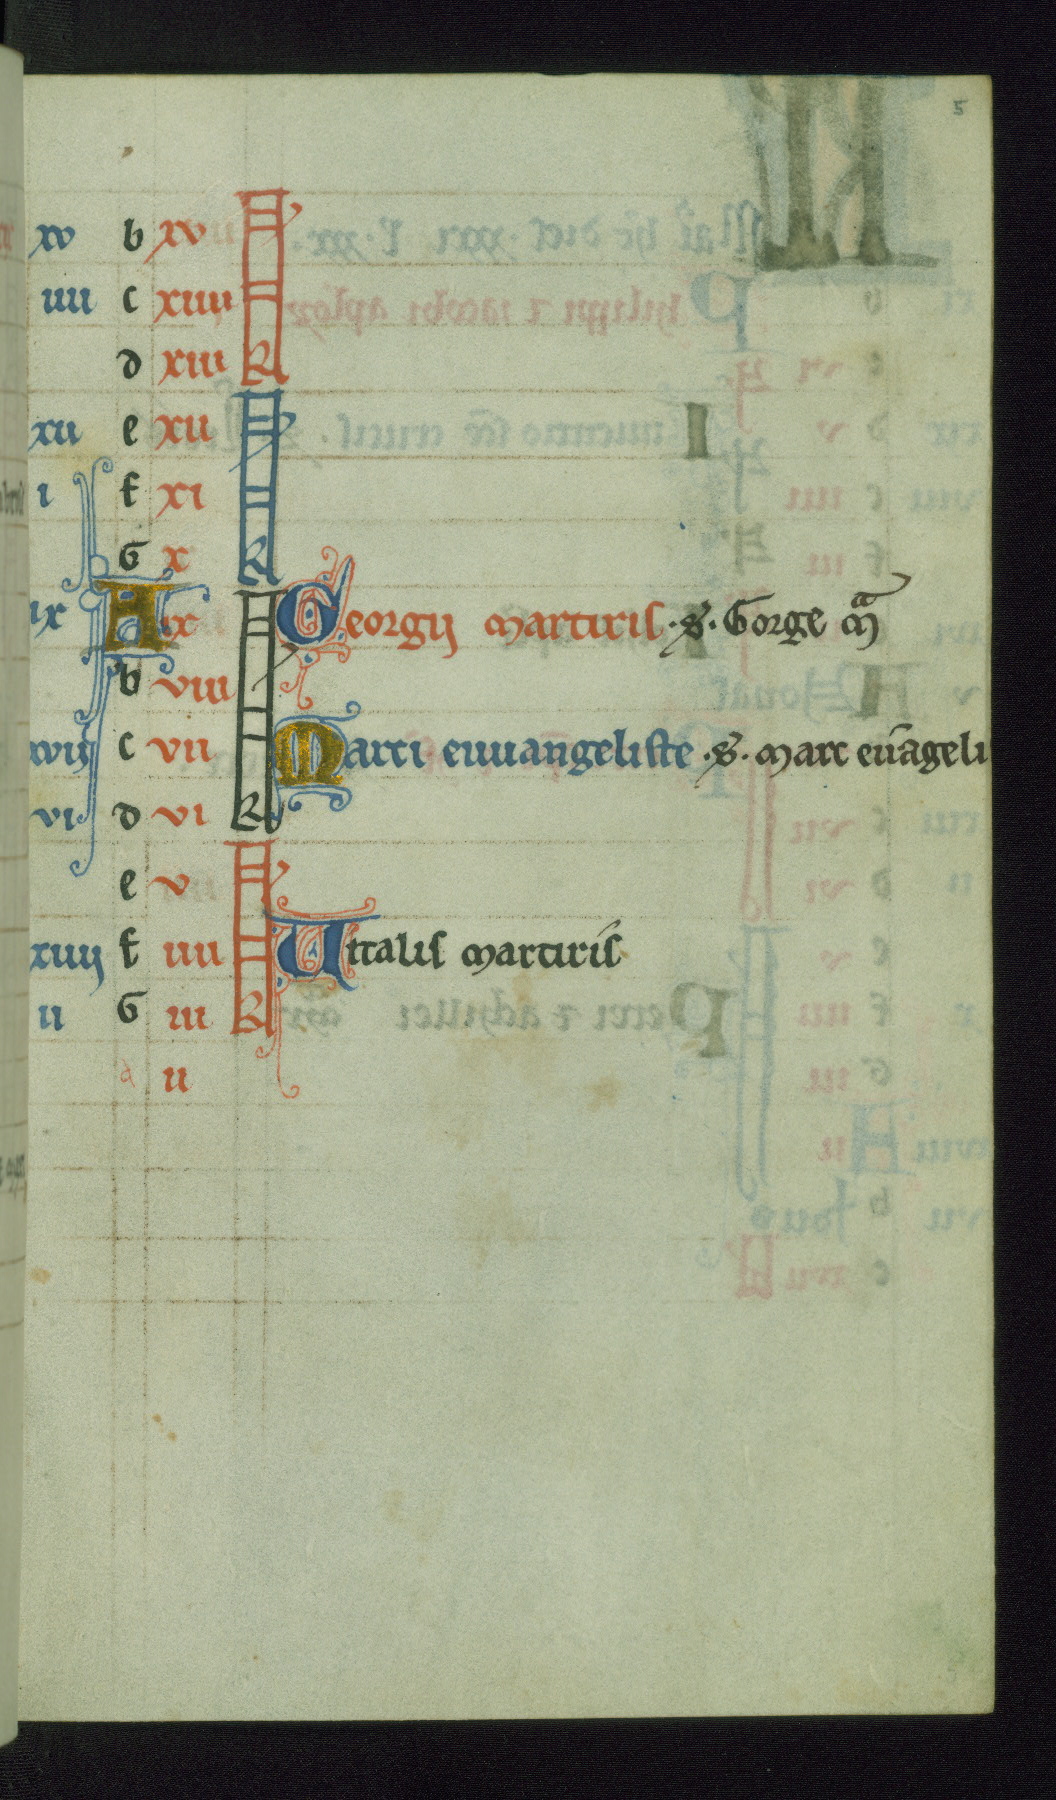 5
xv b xv kl
iiii c xiiii
d xiii
xii e xii kl
i f xi
G x
ix A ix kl Georgij martiris .S. Gorge ma
b viii
xvij c vii Marci euuangeliste .S. marc eũageli
vi d vi
e v kl
xiiij f iiii Vitalis martiris
ii G iii
a ii